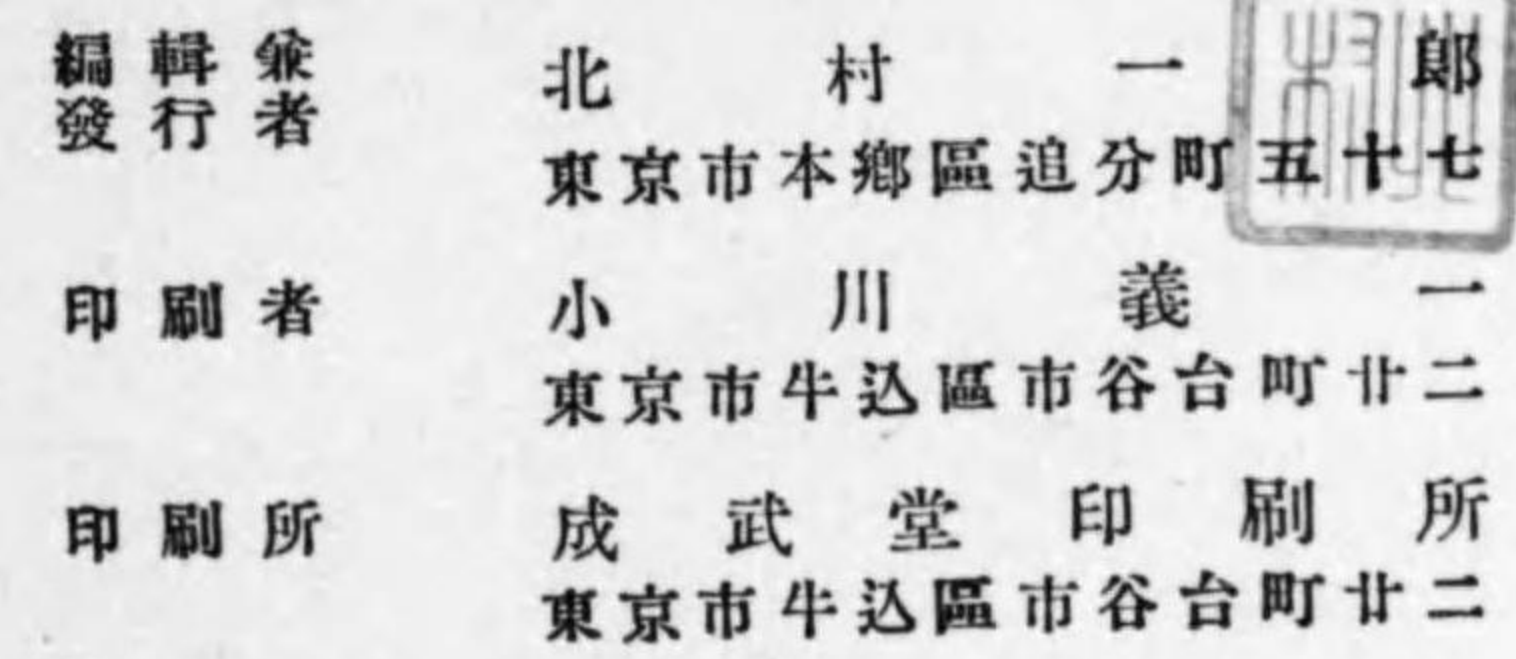 編輯兼
發行者
北村一郎
東京市本鄕區追分町五十七
印刷者
小川義一
東京市牛込區市谷台町廿二
印刷所
成武堂印刷所
東京市牛込區市谷台町廿二